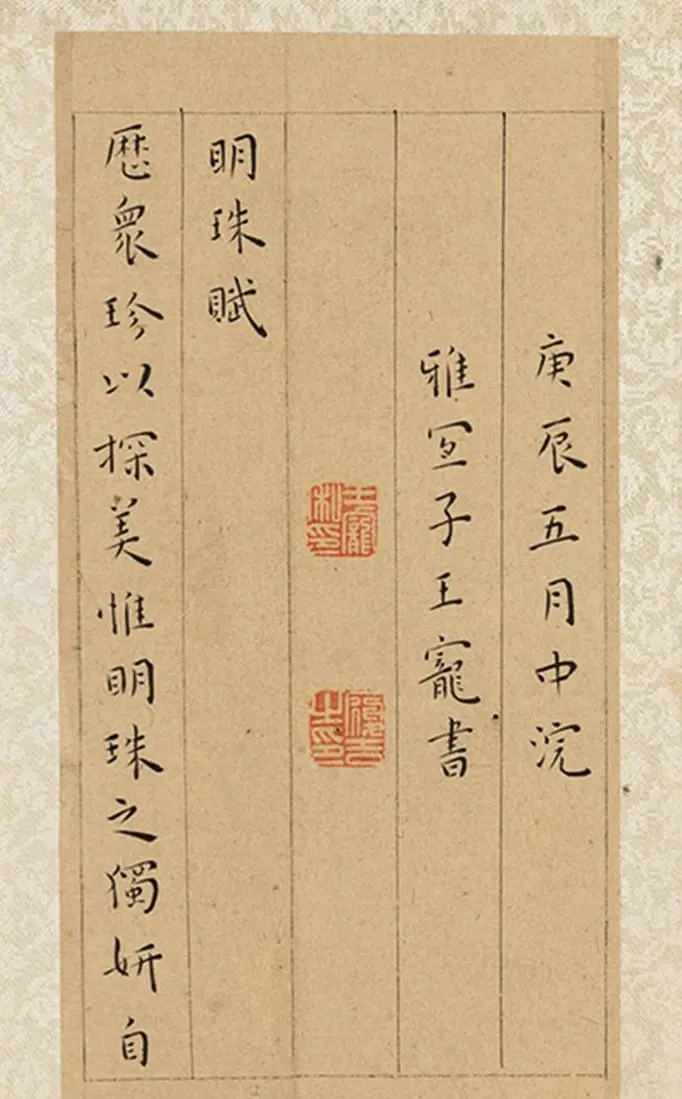 庚辰五月中浣
雅宜子王寵書
王寵私印
明珠賦
歷衆珍以探美惟明珠之獨妍自